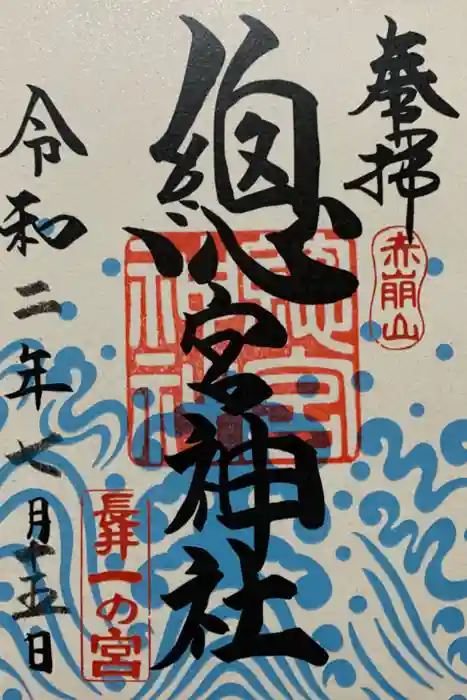 奉拝
赤崩山
總宮神社
總宮神社
長井一の宮
令和二年七月十五日